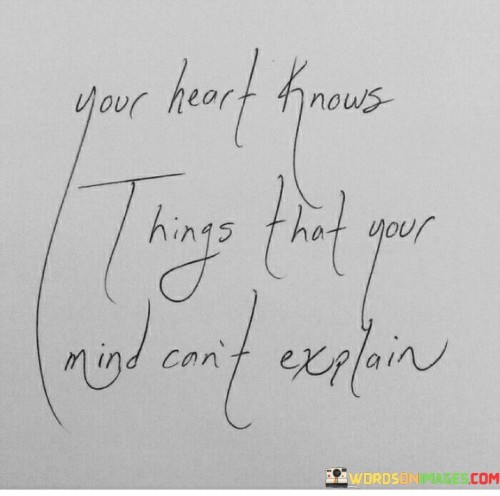 your heart Knows
Things that your
mind can't explain
WORDSONIMAGES.COM